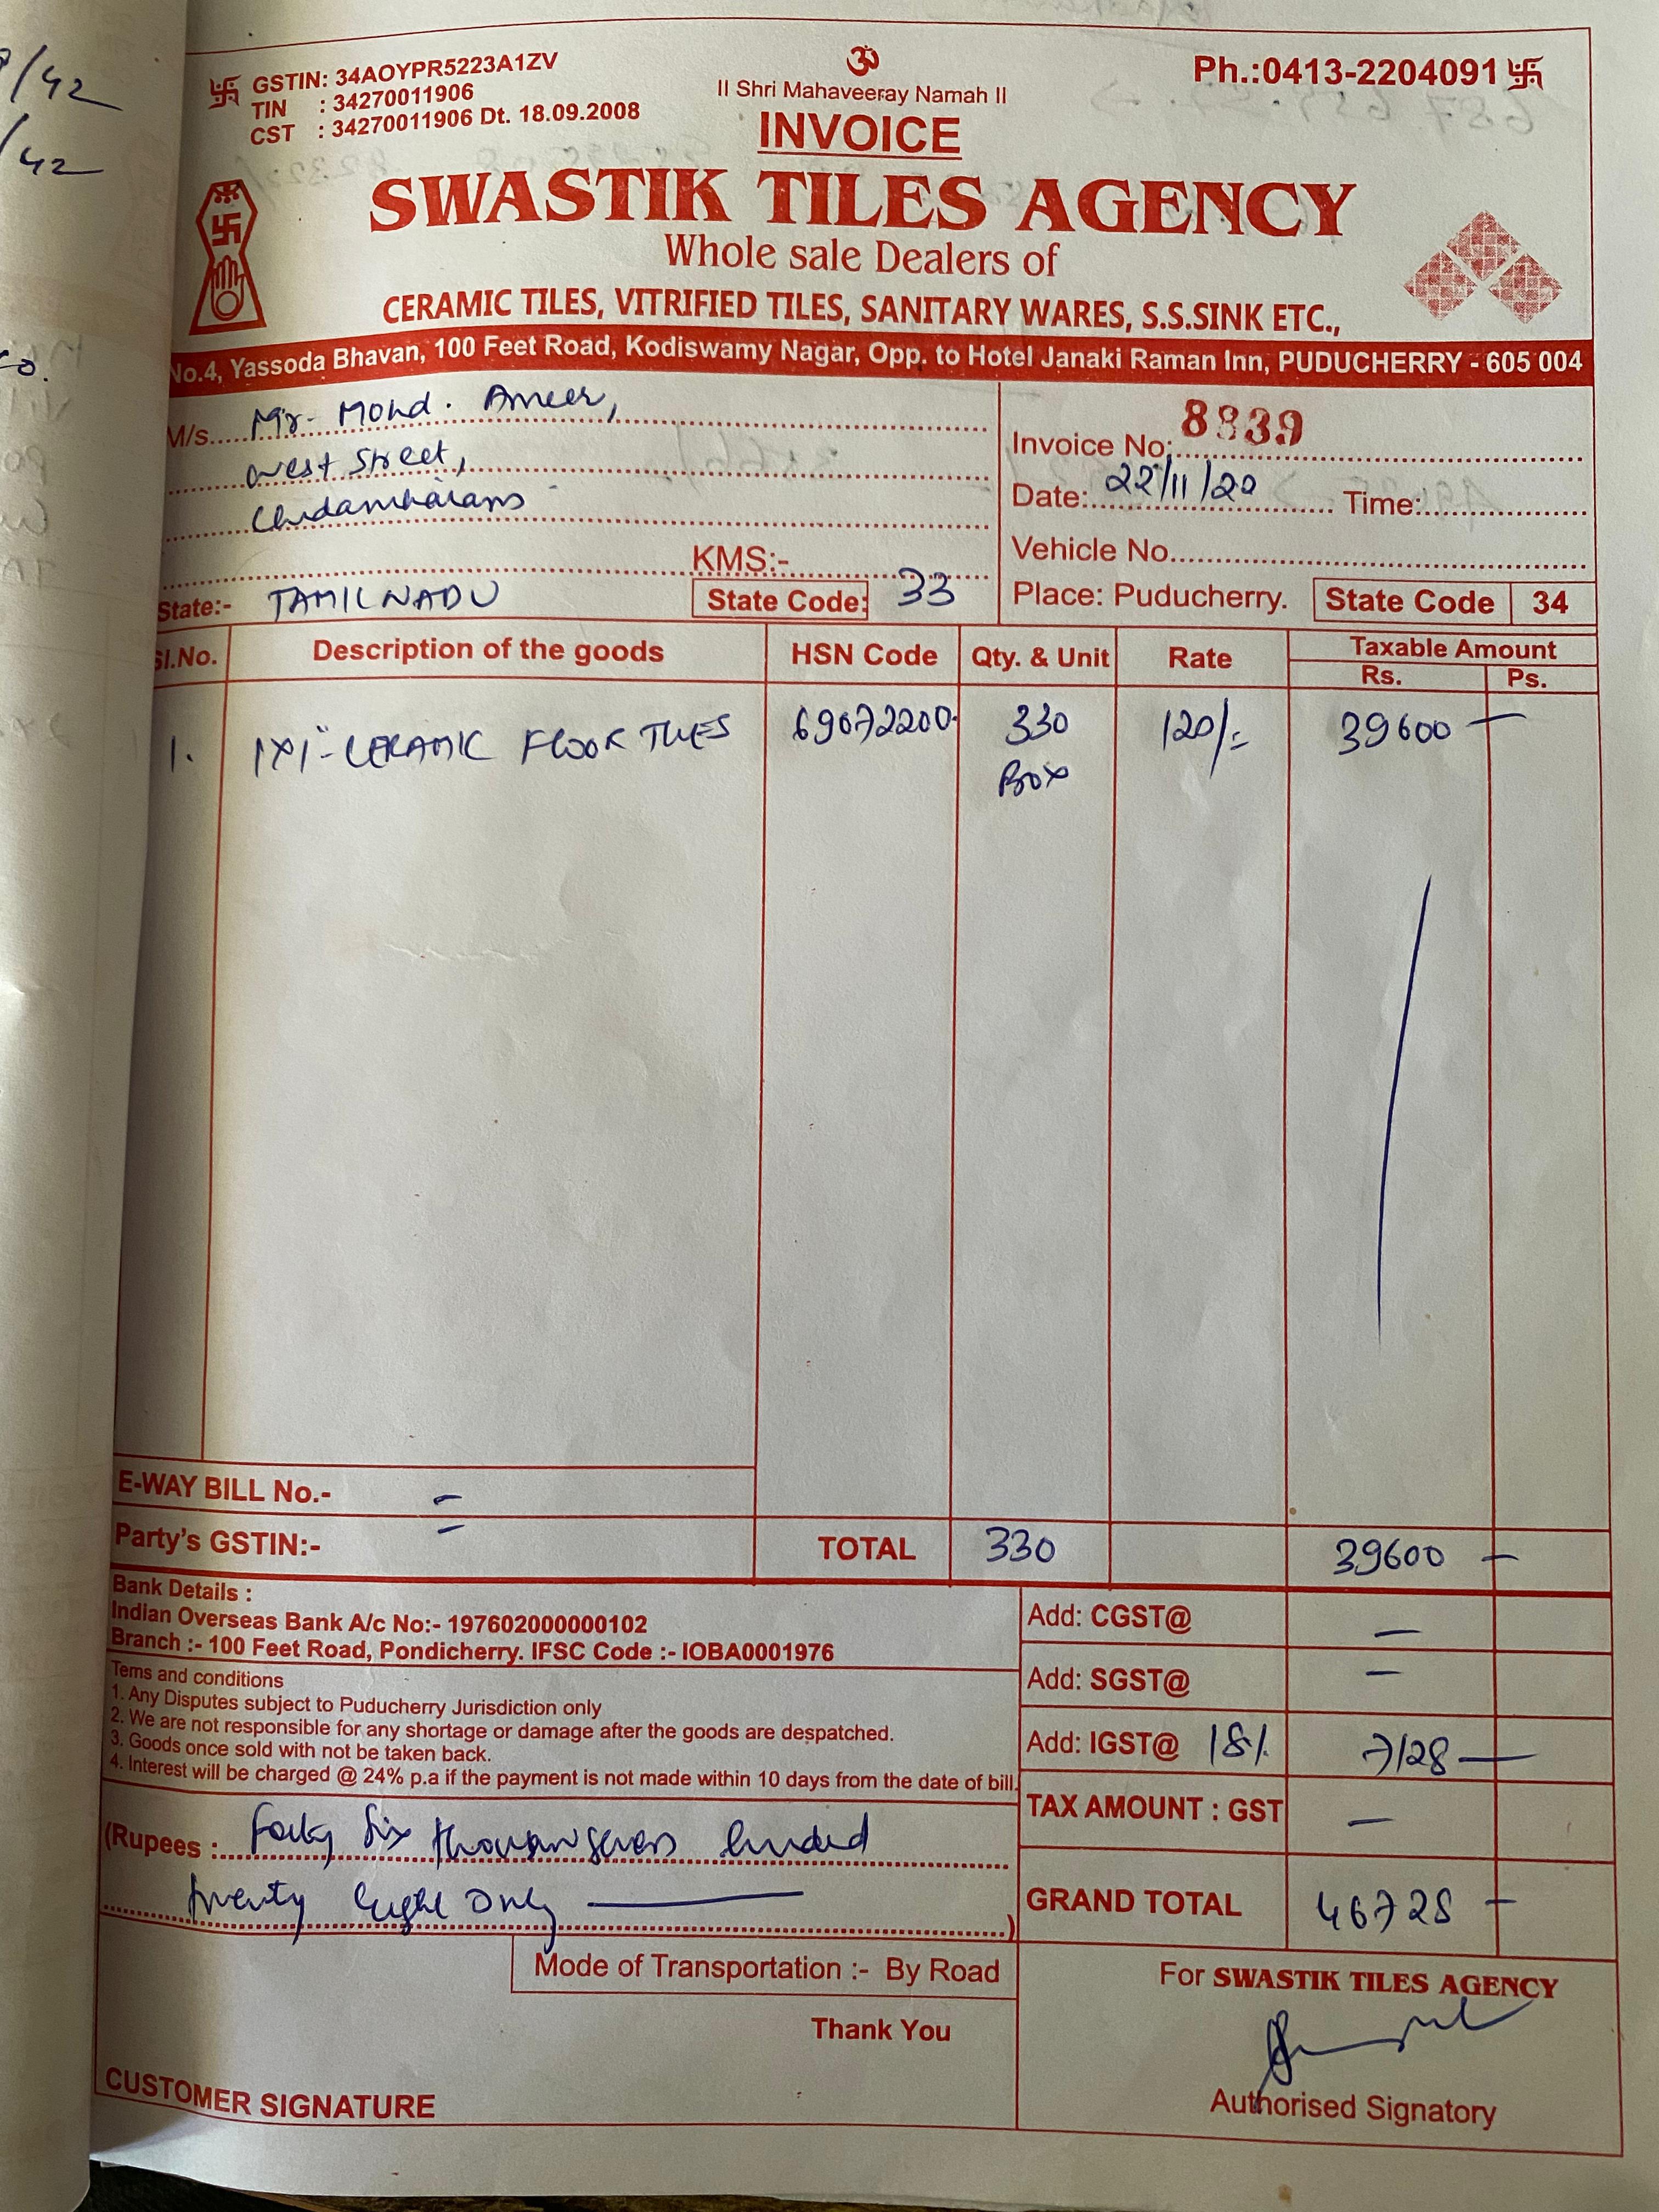 ॐ
GSTIN: 34AOYPR5223A1ZV
TIN : 34270011906
CST : 34270011906 Dt. 18.09.2008
II Shri Mahaveeray Namah II
Ph.:0413-2204091
INVOICE
SWASTIK TILES AGENCY
Whole sale Dealers of
CERAMIC TILES, VITRIFIED TILES, SANITARY WARES, S.S.SINK ETC.,
No.4, Yassoda Bhavan, 100 Feet Road, Kodiswamy Nagar, Opp. to Hotel Janaki Raman Inn, PUDUCHERRY - 605 004
M/s. Mr. Mohd. Ameer,
West Street,
Chidambaram
KMS:-
State:- TAMILNADU State Code: 33
Invoice No: 8839
Date: 22/11/20 Time:
Vehicle No.
Place: Puducherry. State Code 34
Sl.No. Description of the goods HSN Code Qty. & Unit Rate Taxable Amount
Rs. Ps.
1. 1X1"-CERAMIC FLOOR TILES 69072200. 330 120/= 39600 —
Box
E-WAY BILL No.- =
Party's GSTIN:- = TOTAL 330 39600 —
Bank Details :
Indian Overseas Bank A/c No:- 197602000000102
Branch :- 100 Feet Road, Pondicherry. IFSC Code :- IOBA0001976
Tems and conditions
1. Any Disputes subject to Puducherry Jurisdiction only
2. We are not responsible for any shortage or damage after the goods are despatched.
3. Goods once sold with not be taken back.
4. Interest will be charged @ 24% p.a if the payment is not made within 10 days from the date of bill.
Add: CGST@ —
Add: SGST@ —
Add: IGST@ 18% 7128 —
TAX AMOUNT : GST —
GRAND TOTAL 46728 —
(Rupees : Forty Six thousan seven hundred
twenty Eight only —)
Mode of Transportation :- By Road
Thank You
CUSTOMER SIGNATURE
For SWASTIK TILES AGENCY
Authorised Signatory
/42
/42